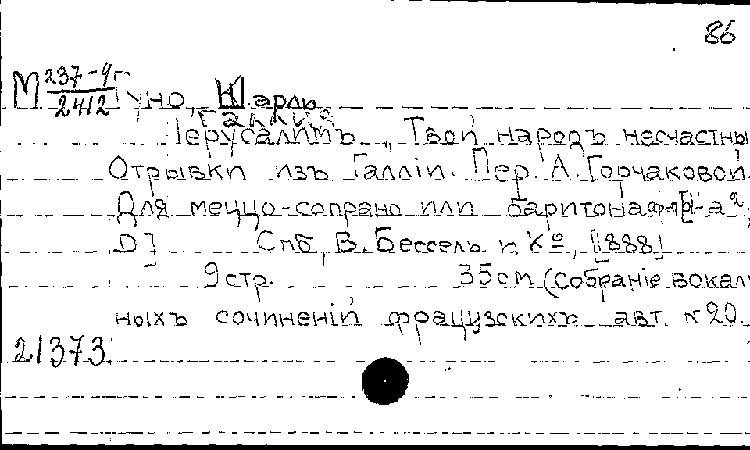 86
М 237-4г
2412
уно, Шарль
Галлия
Іерусалимъ, Твой народъ несчастны
Отрывки изъ Галліи. Пер. А. Горчаковой.
Для меццо-сопрано или баритона
D] Спб, В. Бессель и Ко, [1888]
9 стр. 35 см (Собраніе вокаль
ныхъ сочиненій фрацузскихъ авт. № 20.
21373.